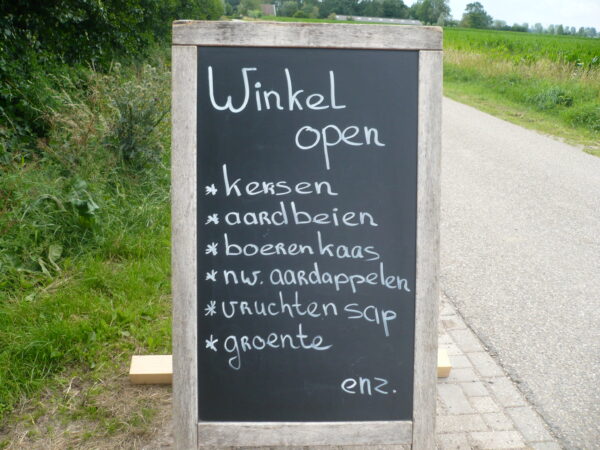 Winkel
open
* kersen
* aardbeien
* boerenkaas
* nw. aardappelen
* vruchten sap
* groente
enz.